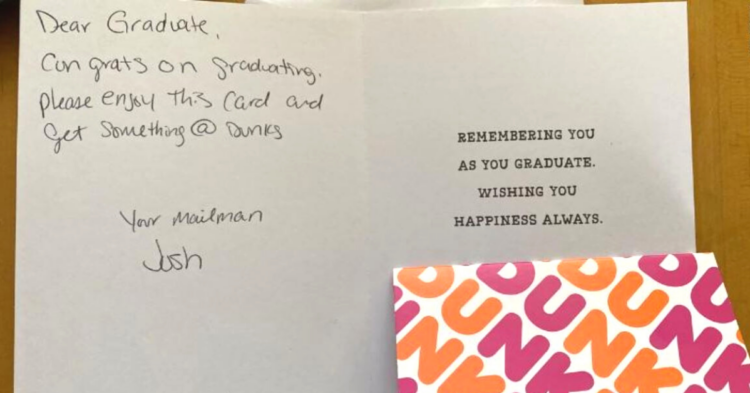 Dear Graduate,
Congrats on graduating.
Please enjoy This Card and
Get Something @ Dunks
Your Mailman
Josh
REMEMBERING YOU
AS YOU GRADUATE.
WISHING YOU
HAPPINESS ALWAYS.
DUNK
DUNK
DUNK
DUNK